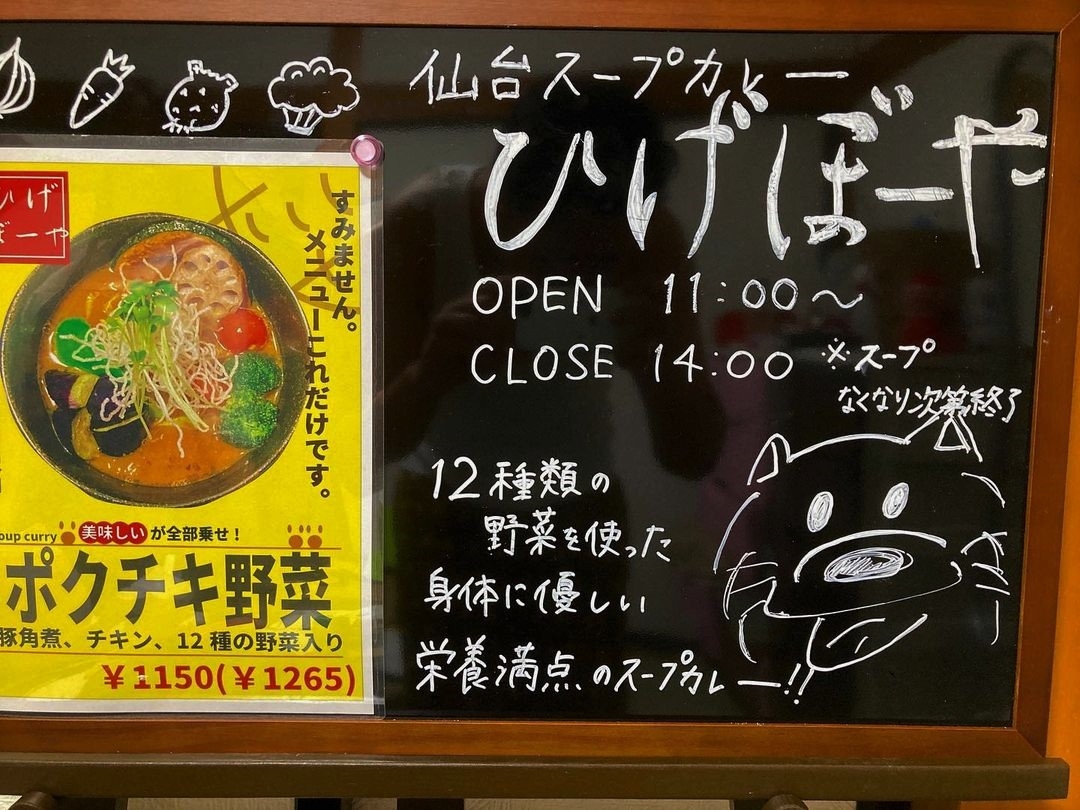 仙台スープカレー
ひげぼーや
OPEN 11:00～
CLOSE 14:00 ※スープ
なくなり次第終了
12種類の
野菜を使った
身体に優しい
栄養満点のスープカレー!!
ひげ
ぼーや
すみません。
メニューこれだけです。
oup curry 美味しいが全部乗せ！
ポクチキ野菜
豚角煮、チキン、12種の野菜入り
￥1150(￥1265)